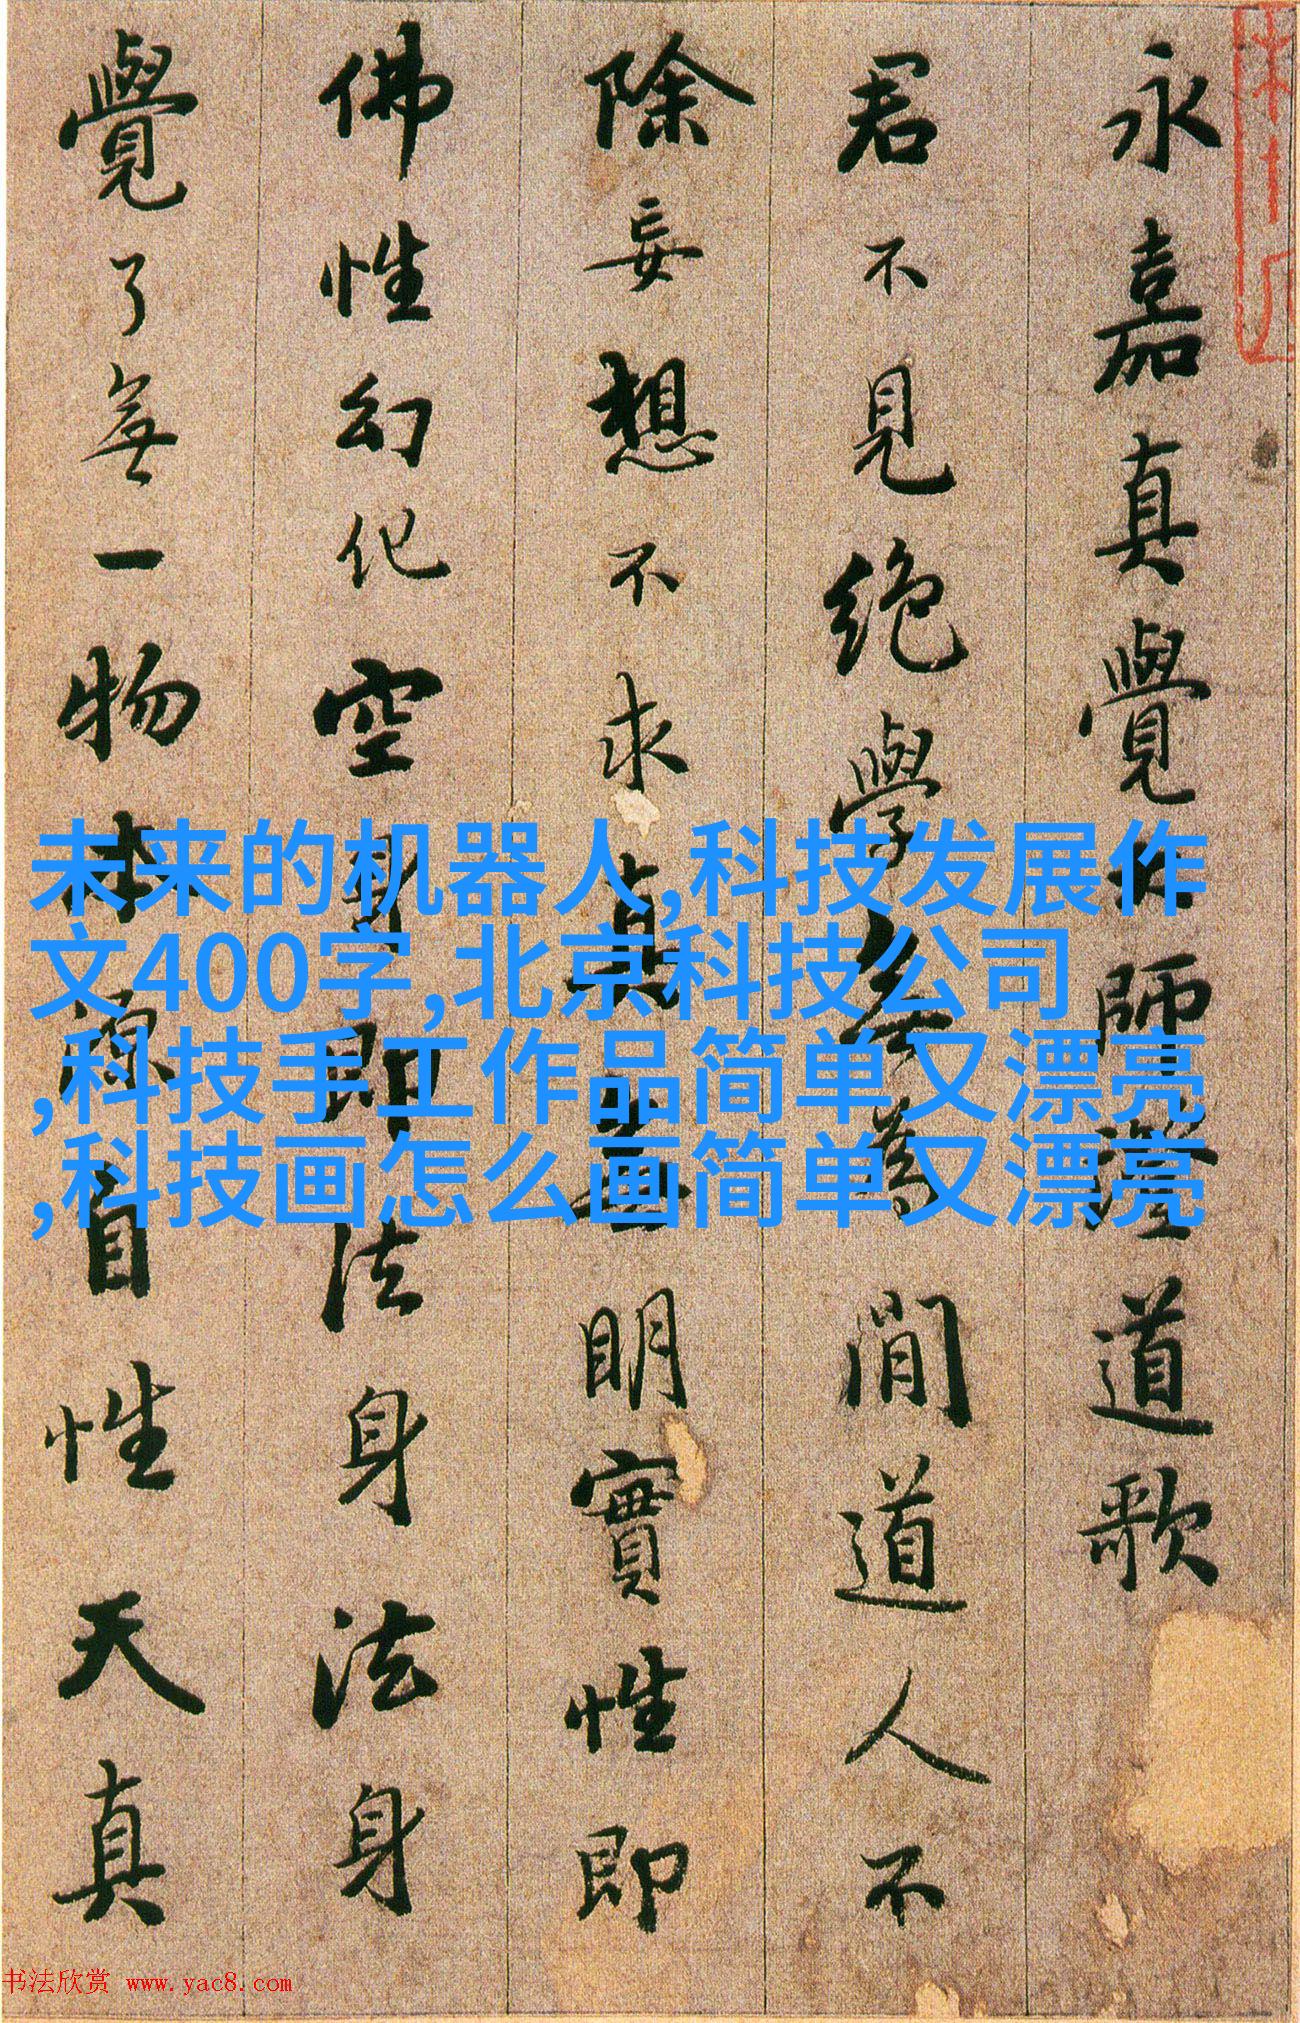 永嘉真覺大師證道歌
君不見絕學無為閒道人不
除妄想不求真無明實性即
佛性幻化空身即法身法身
覺了無一物本源自性天真
未来的机器人,科技发展作
文400字,北京科技公司
,科技手工作品简单又漂亮
,科技画怎么画简单又漂亮
书法欣赏 www.yac8.com